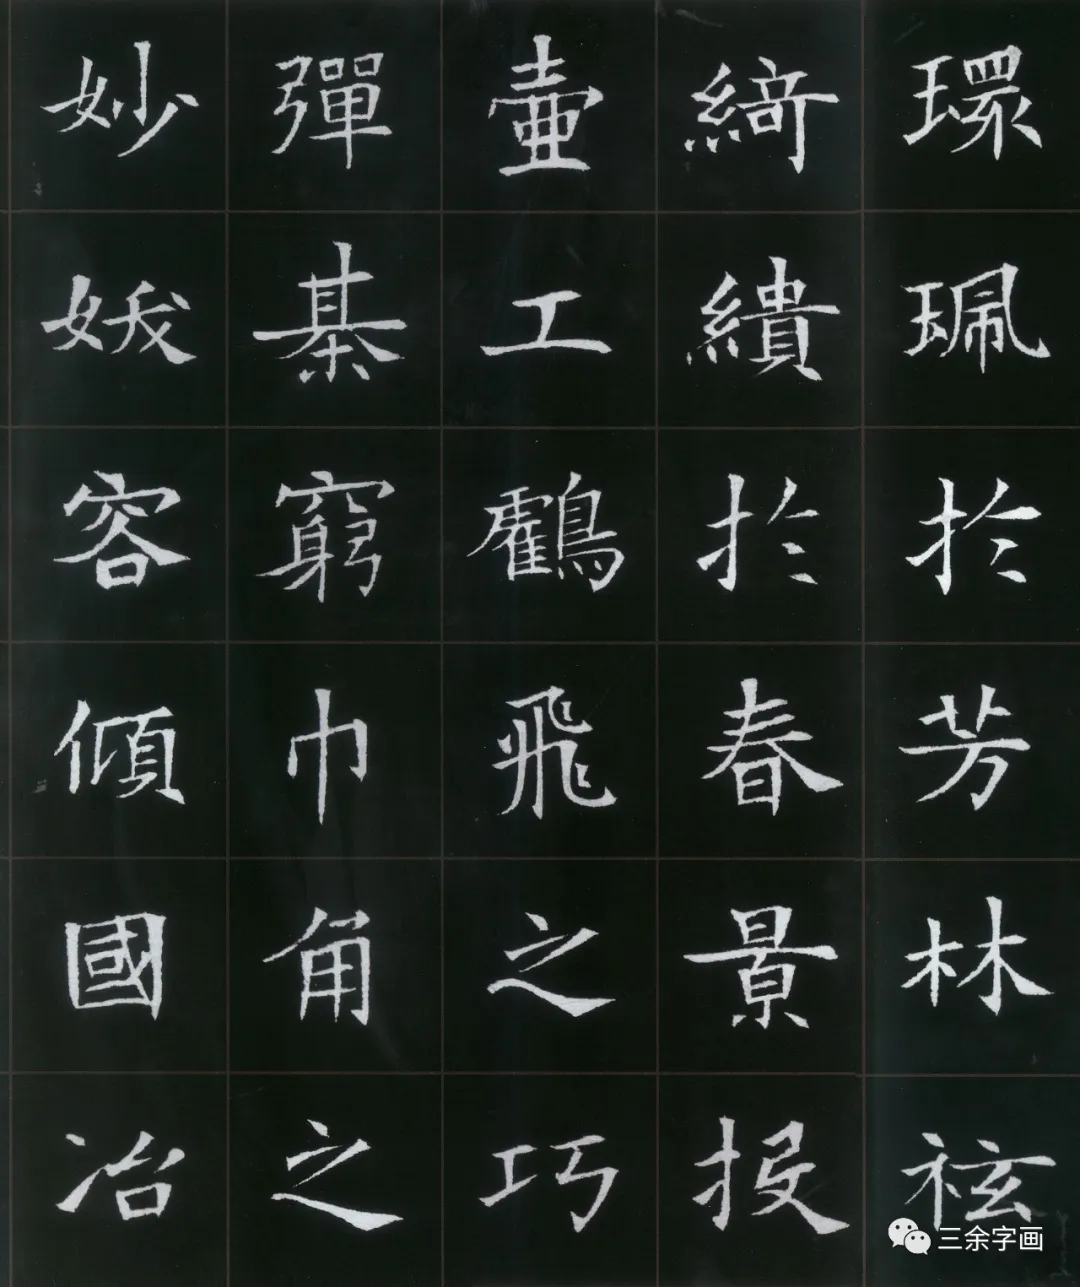 環珮於芳林袨
綺繢於春景投
壺工鸖飛之巧
彈棊窮巾角之
妙妖容傾國冶
三余字画